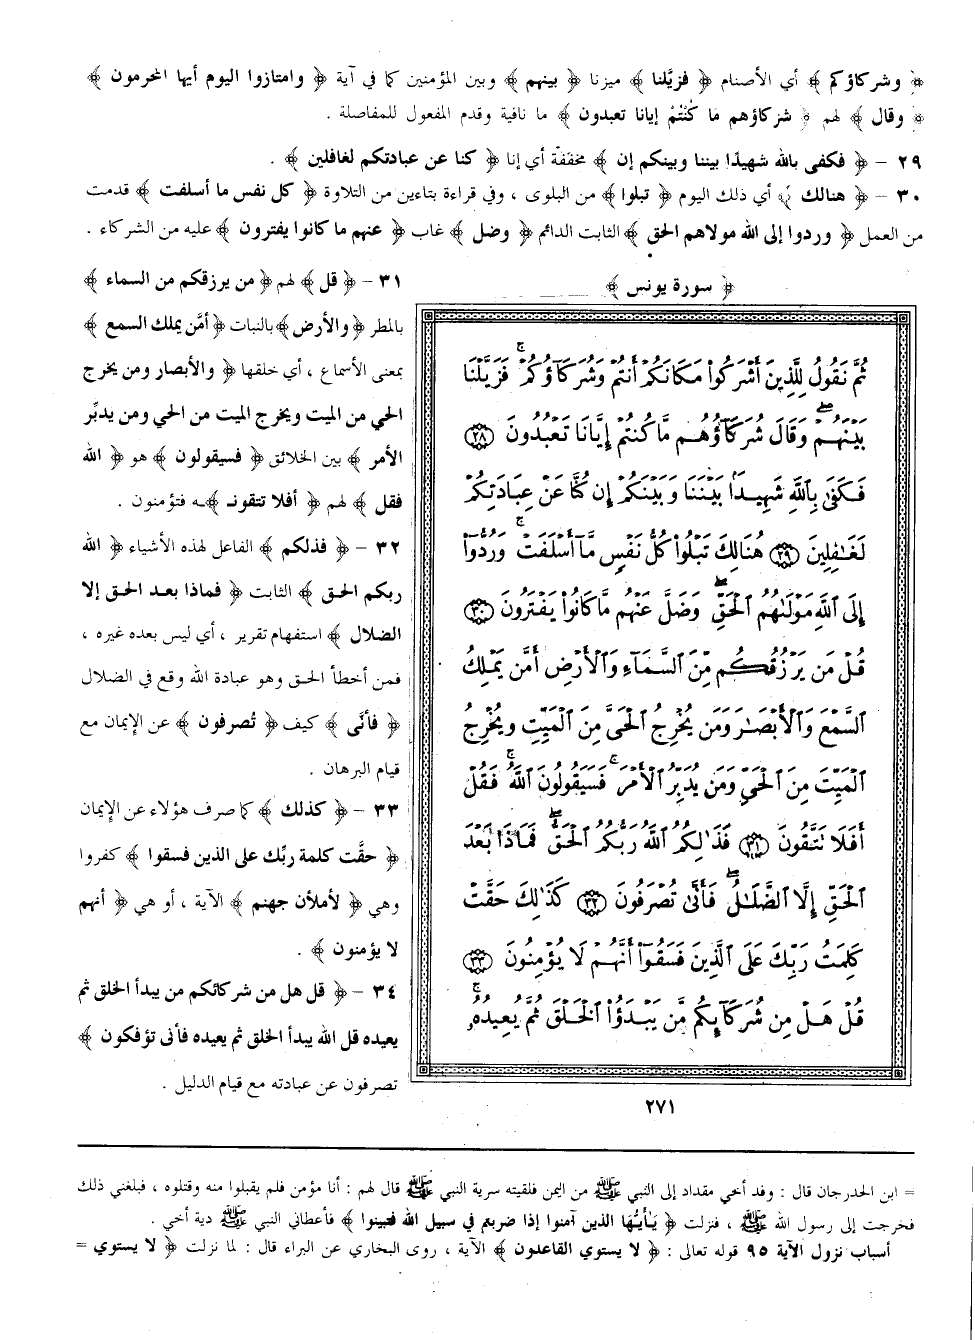 ﴿ وشركاؤكم ﴾ أي الأصنام ﴿ فزيَّلنا ﴾ ميزنا ﴿ بينهم ﴾ وبين المؤمنين كما في آية ﴿ وامتازوا اليوم أيها المجرمون ﴾
﴿ وقال ﴾ لهم ﴿ شركاؤهم ما كُنْتُمْ إيانا تعبدون ﴾ ما نافية وقدم المفعول للمفاصلة .
٢٩ – ﴿ فكفى بالله شهيدًا بيننا وبينكم إن ﴾ مخففة أي إنا ﴿ كنا عن عبادتكم لغافلين ﴾ .
٣٠ – ﴿ هنالك ﴾ أي ذلك اليوم ﴿ تبلوا ﴾ من البلوى ، وفي قراءة بتاءين من التلاوة ﴿ كل نفس ما أسلفت ﴾ قدمت
من العمل ﴿ وردوا إلى الله مولاهم الحق ﴾ الثابت الدائم ﴿ وضل ﴾ غاب ﴿ عنهم ما كانوا يفترون ﴾ عليه من الشركاء .
﴿ سورة يونس ﴾
ثُمَّ نَقُولُ لِلَّذِينَ أَشْرَكُوا۟ مَكَانَكُمْ أَنتُمْ وَشُرَكَآؤُكُمْ ۚ فَزَيَّلْنَا
بَيْنَهُمْ ۖ وَقَالَ شُرَكَآؤُهُم مَّا كُنتُمْ إِيَّانَا تَعْبُدُونَ ٢٨
فَكَفَىٰ بِٱللَّهِ شَهِيدًۢا بَيْنَنَا وَبَيْنَكُمْ إِن كُنَّا عَنْ عِبَادَتِكُمْ
لَغَٰفِلِينَ ٢٩ هُنَالِكَ تَبْلُوا۟ كُلُّ نَفْسٍ مَّآ أَسْلَفَتْ ۚ وَرُدُّوٓا۟
إِلَى ٱللَّهِ مَوْلَىٰهُمُ ٱلْحَقِّ ۖ وَضَلَّ عَنْهُم مَّا كَانُوا۟ يَفْتَرُونَ ٣٠
قُلْ مَن يَرْزُقُكُم مِّنَ ٱلسَّمَآءِ وَٱلْأَرْضِ أَمَّن يَمْلِكُ
ٱلسَّمْعَ وَٱلْأَبْصَٰرَ وَمَن يُخْرِجُ ٱلْحَىَّ مِنَ ٱلْمَيِّتِ وَيُخْرِجُ
ٱلْمَيِّتَ مِنَ ٱلْحَىِّ وَمَن يُدَبِّرُ ٱلْأَمْرَ ۚ فَسَيَقُولُونَ ٱللَّهُ ۚ فَقُلْ
أَفَلَا تَتَّقُونَ ٣١ فَذَٰلِكُمُ ٱللَّهُ رَبُّكُمُ ٱلْحَقُّ ۖ فَمَاذَا بَعْدَ
ٱلْحَقِّ إِلَّا ٱلضَّلَٰلُ ۖ فَأَنَّىٰ تُصْرَفُونَ ٣٢ كَذَٰلِكَ حَقَّتْ
كَلِمَتُ رَبِّكَ عَلَى ٱلَّذِينَ فَسَقُوٓا۟ أَنَّهُمْ لَا يُؤْمِنُونَ ٣٣
قُلْ هَلْ مِن شُرَكَآئِكُم مَّن يَبْدَؤُا۟ ٱلْخَلْقَ ثُمَّ يُعِيدُهُۥ ۚ
٢٧١
٣١ – ﴿ قل ﴾ لهم ﴿ من يرزقكم من السماء ﴾
بالمطر ﴿ والأرض ﴾ بالنبات ﴿ أمَّن يملك السمع ﴾
بمعنى الأسماع ، أي خلقها ﴿ والأبصار ومن يخرج
الحي من الميت ويخرج الميت من الحي ومن يدبِّر
الأمر ﴾ بين الخلائق ﴿ فسيقولون ﴾ هو ﴿ الله
فقل ﴾ لهم ﴿ أفلا تتقونـ ﴾ـه فتؤمنون .
٣٢ – ﴿ فذلكم ﴾ الفاعل لهذه الأشياء ﴿ الله
ربكم الحق ﴾ الثابت ﴿ فماذا بعد الحق إلا
الضلال ﴾ استفهام تقرير ، أي ليس بعده غيره ،
فمن أخطأ الحق وهو عبادة الله وقع في الضلال
﴿ فأنَّى ﴾ كيف ﴿ تُصرفون ﴾ عن الإيمان مع
قيام البرهان .
٣٣ – ﴿ كذلك ﴾ كما صرف هؤلاء عن الإيمان
﴿ حقَّت كلمة ربِّك على الذين فسقوا ﴾ كفروا
وهي ﴿ لأملأن جهنم ﴾ الآية ، أو هي ﴿ أنهم
لا يؤمنون ﴾ .
٣٤ – ﴿ قل هل من شركائكم من يبدأ الخلق ثم
يعيده قل الله يبدأ الخلق ثم يعيده فأنى تؤفكون ﴾
تصرفون عن عبادته مع قيام الدليل .
= ابن الحدرجان قال : وفد أخي مقداد إلى النبي ﷺ من اليمن فلقيته سرية النبي ﷺ قال لهم : أنا مؤمن فلم يقبلوا منه وقتلوه ، فبلغني ذلك
فخرجت إلى رسول الله ﷺ ، فنزلت ﴿ يَـٰأيُّهَا الذين آمنوا إذا ضربتم في سبيل الله فتبينوا ﴾ فأعطاني النبي ﷺ دية أخي .
أسباب نزول الآية ٩٥ قوله تعالى : ﴿ لا يستوي القاعدون ﴾ الآية ، روى البخاري عن البراء قال : لما نزلت ﴿ لا يستوي =